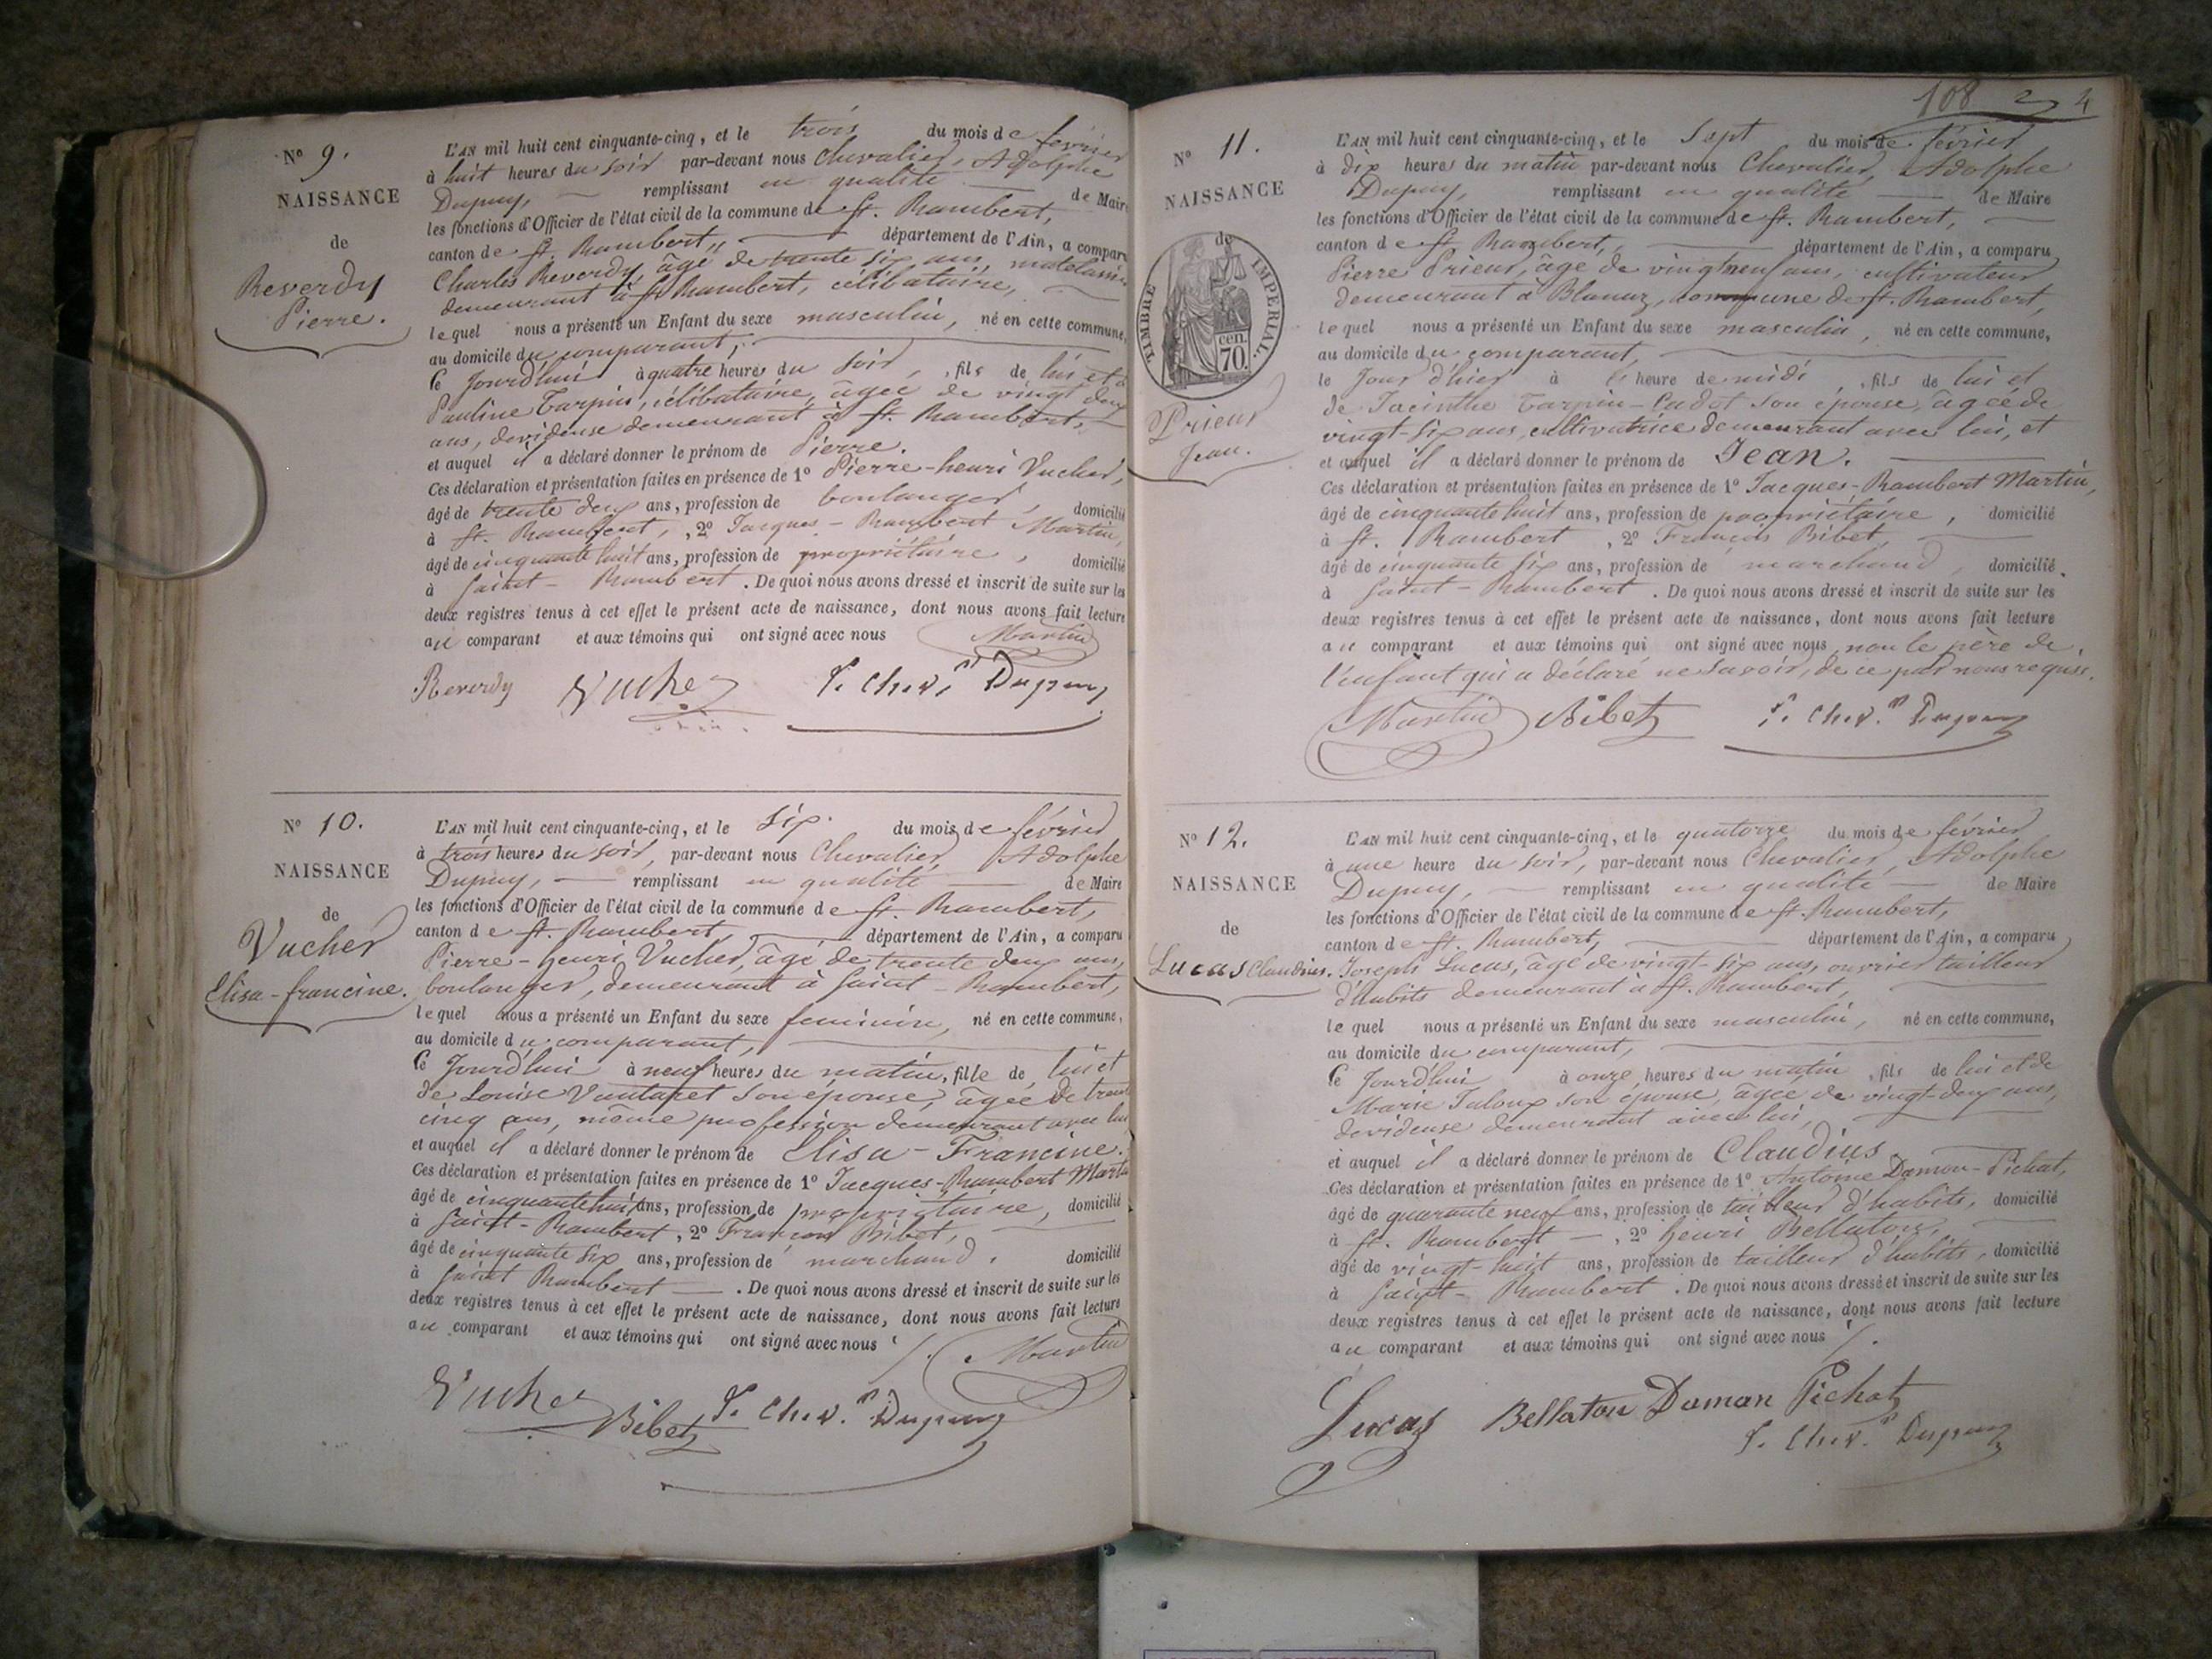 N° 9.
NAISSANCE
de
Reverdy
Pierre.
L'AN mil huit cent cinquante-cinq, et le trois du mois de février
à huit heures du soir par-devant nous Chevalier, Adolphe
Dupuy, remplissant en qualité de Maire
les fonctions d'Officier de l'état civil de la commune de St. Rambert,
canton de St. Rambert, département de l'Ain, a comparu
Charles Reverdy, âgé de trente six ans, matelassier
demeurant à St Rambert, célibataire,
lequel nous a présenté un Enfant du sexe masculin, né en cette commune,
au domicile du comparant,
ce Jourd'hui à quatre heures du soir, fils de lui et de
Pauline Tarpin, célibataire, âgée de vingt deux
ans, devideuse demeurant à St. Rambert,
et auquel il a déclaré donner le prénom de Pierre.
Ces déclaration et présentation faites en présence de 1° Pierre-henri Vucher,
âgé de trente deux ans, profession de boulanger, domicilié
à St. Rambert, 2° Jacques-Rambert Martin,
âgé de cinquante huit ans, profession de propriétaire, domicilié
à Saint-Rambert. De quoi nous avons dressé et inscrit de suite sur les
deux registres tenus à cet effet le présent acte de naissance, dont nous avons fait lecture
au comparant et aux témoins qui ont signé avec nous Martin
Reverdy Vucher P. Chev.r Dupuy
N° 10.
NAISSANCE
de
Vucher
Elisa-francine.
L'AN mil huit cent cinquante-cinq, et le six du mois de février
à trois heures du soir, par-devant nous Chevalier, Adolphe
Dupuy, remplissant en qualité de Maire
les fonctions d'Officier de l'état civil de la commune de St. Rambert,
canton de St. Rambert, département de l'Ain, a comparu
Pierre-henri Vucher, âgé de trente deux ans,
boulanger, demeurant à Saint-Rambert,
lequel nous a présenté un Enfant du sexe feminin, né en cette commune,
au domicile du comparant,
ce Jourd'hui à neuf heures du matin, fille de lui et
de Louise Vuntaret son épouse, âgée de trente
cinq ans, même profession demeurant avec lui
et auquel il a déclaré donner le prénom de Elisa-Francine.
Ces déclaration et présentation faites en présence de 1° Jacques-Rambert Martin
âgé de cinquante huit ans, profession de propriétaire, domicilié
à Saint-Rambert, 2° François Bibet,
âgé de cinquante six ans, profession de marchand, domicilié
à Saint Rambert. De quoi nous avons dressé et inscrit de suite sur les
deux registres tenus à cet effet le présent acte de naissance, dont nous avons fait lecture
au comparant et aux témoins qui ont signé avec nous Martin
Vucher Bibet P. Chev.r Dupuy
108 2 4
N° 11.
NAISSANCE
de
TIMBRE IMPERIAL.
cen.
70.
Prieur
Jean.
L'AN mil huit cent cinquante-cinq, et le Sept du mois de février
à dix heures du matin par-devant nous Chevalier, Adolphe
Dupuy, remplissant en qualité de Maire
les fonctions d'Officier de l'état civil de la commune de St. Rambert,
canton de St Rambert, département de l'Ain, a comparu
Pierre Prieur, âgé de vingt neuf ans, cultivateur
demeurant à Blanaz, commune de St. Rambert,
lequel nous a présenté un Enfant du sexe masculin, né en cette commune,
au domicile du comparant,
le Jour d'hier à l'heure de midi, fils de lui et
de Jacinthe Tarpin-Cadot son épouse, âgée de
vingt-six ans, cultivatrice demeurant avec lui, et
et auquel il a déclaré donner le prénom de Jean.
Ces déclaration et présentation faites en présence de 1° Jacques-Rambert Martin,
âgé de cinquante huit ans, profession de propriétaire, domicilié
à St. Rambert, 2° François Bibet,
âgé de cinquante six ans, profession de marchand, domicilié
à Saint-Rambert. De quoi nous avons dressé et inscrit de suite sur les
deux registres tenus à cet effet le présent acte de naissance, dont nous avons fait lecture
au comparant et aux témoins qui ont signé avec nous, non le père de
l'enfant qui a déclaré ne savoir, de ce par nous requis.
Martin Bibet P. Chev.r Dupuy
N° 12.
NAISSANCE
de
Lucas Claudius.
L'AN mil huit cent cinquante-cinq, et le quatorze du mois de février
à une heure du soir, par-devant nous Chevalier, Adolphe
Dupuy, remplissant en qualité de Maire
les fonctions d'Officier de l'état civil de la commune de St. Rambert,
canton de St. Rambert, département de l'Ain, a comparu
Joseph Lucas, âgé de vingt-six ans, ouvrier tailleur
d'habits demeurant à St. Rambert,
lequel nous a présenté un Enfant du sexe masculin, né en cette commune,
au domicile du comparant,
ce Jourd'hui à onze heures du matin, fils de lui et de
Marie Juloux son épouse, âgée de vingt-deux ans,
devideuse demeurant avec lui,
et auquel il a déclaré donner le prénom de Claudius
Ces déclaration et présentation faites en présence de 1° Antoine Damon-Pichat,
âgé de quarante neuf ans, profession de tailleur d'habits, domicilié
à St. Rambert, 2° henri Bellaton,
âgé de vingt-huit ans, profession de tailleur d'habits, domicilié
à Saint-Rambert. De quoi nous avons dressé et inscrit de suite sur les
deux registres tenus à cet effet le présent acte de naissance, dont nous avons fait lecture
au comparant et aux témoins qui ont signé avec nous
Lucas Bellaton Daman Pichat
P. Chev.r Dupuy